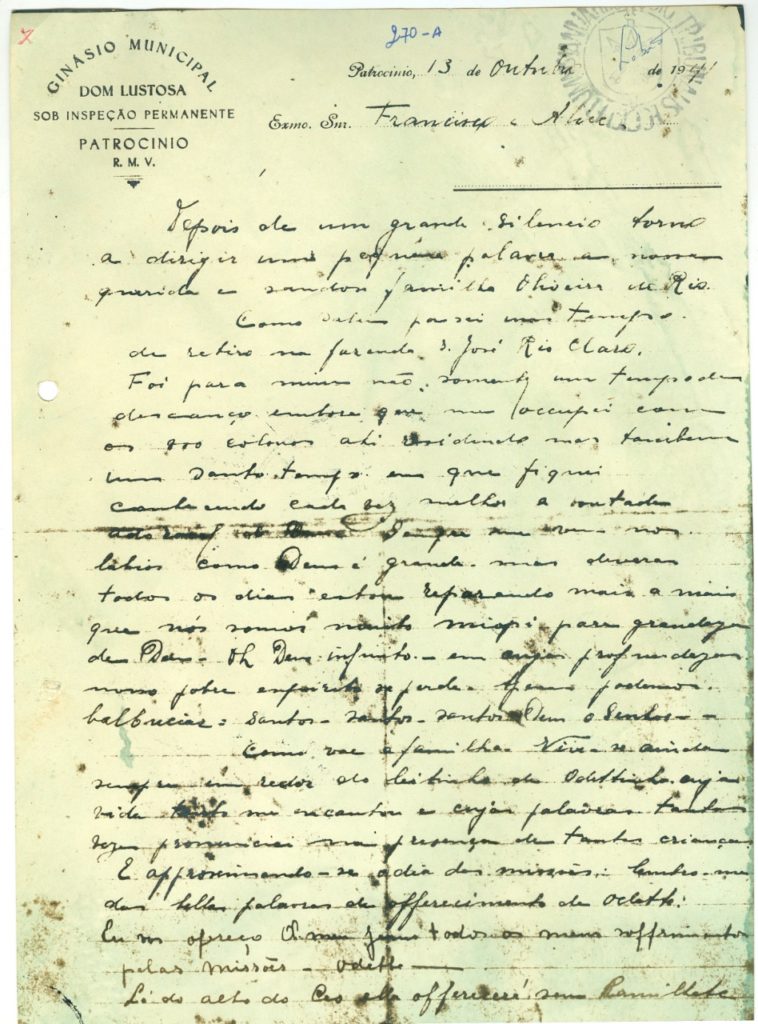 7
270-A
GINÁSIO MUNICIPAL
DOM LUSTOSA
SOB INSPEÇÃO PERMANENTE
PATROCINIO
R. M. V.
Patrocinio, 13 de Outubro de 1941
Exmo. Snr. Francisco e Alice
Depois de um grande silencio torno
a dirigir uma pequena palavra a nossa
querida e familha Oliveira de Rio.
Como sabem passei uns tempos
de retiro na fazenda S. José Rio Claro.
Foi para mim não somente um tempo de
descanço embora que me occupei com
os 800 colonos ahi residindo mas tambem
um santo tempo em que fiquei
conhecendo cada vez melhor a vontade
Sempre me vem nos
labios como Deus é grande mas deveras
todos os dias estou reparando mais a mais
que nós somos muito miopi para grandeza
de Deus - Oh Deus infinito - em cujas profundezas
nosso pobre espirito se perde. podemos
balbuciar: santos - santos - santos Deus o Senhor -
Como vae a familha. Vive-se ainda
sempre em redor do leitinho de Odettinha cuja
vida tanto me encantou e cujas palavras tantas
vezes pronunciei na presença de tantas crianças
E approximando-se o dia das missões. lembro-me
das bellas palavras de offerecimento de Odette:
Eu vos ofereço Oh meu Jesus todos os meus soffrimentos
pelas missões - Odette -
Lá do alto do Ceo ella offerecerá seu Ramilhete